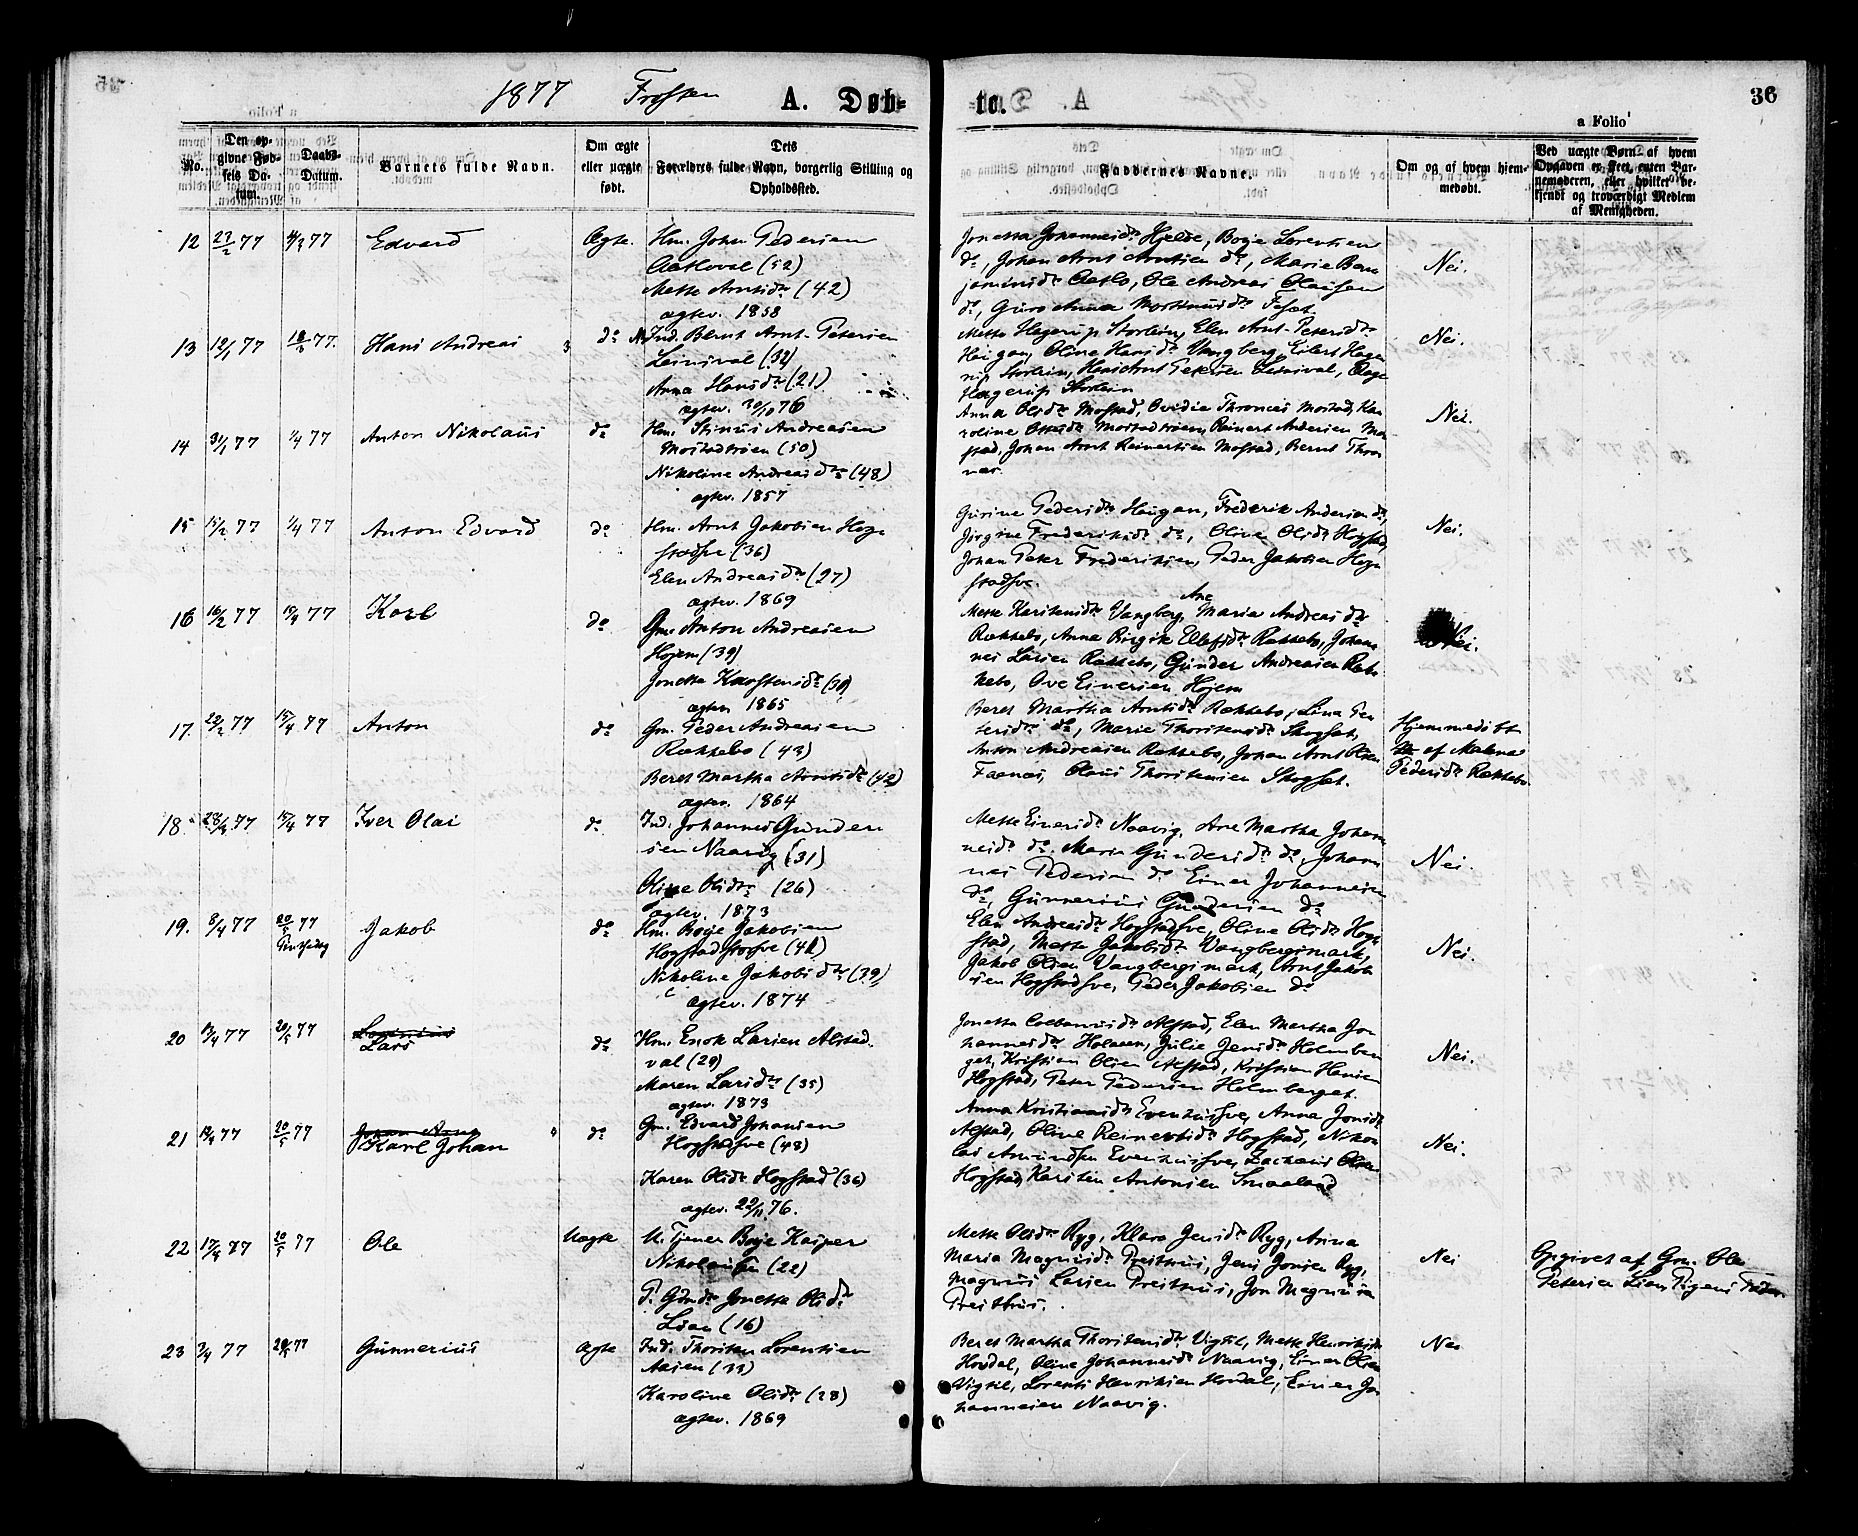 1877 Frosten A. Døb-
te. 36
a Folio
No.
Den op-
givne Fød-
sels Da-
tum.
Daabs-
Datum.
Barnets fulde Navn.
Om ægte
eller uægte
født.
Dets
Forældres fulde Navn, borgerlig Stilling og
Opholdssted.
Faddernes Navne.
Om og af hvem hjem-
medøbt.
Ved uægte Børn af hvem
Opgaven er skeet, enten Bar-
nemoderen, eller hvilket be-
kjendt og troværdigt Medlem
af Menigheden.
12 27/2 77 4/3 77 Edvard Ægte. Hm. John Pedersen
(52)
Mette Arntsdr (42)
ægtev. 1858
Jonetta Johannesdr Hjelde, Boje Lorentsen
do, Johan Arnt Arntsen do, Marie Ben-
jaminsdr Aatlo, Ole Andreas Olausen
do, Guro Anna
Nei.
13 12/1 77 18/3 77. Hans Andreas do Ind. Bernt Arnt Petersen
Leinsval (32)
Anna Hansdr (21)
ægtev. 30/10 76
Mette Hagerup Storlein, Elen Arnt-Petersdr
Haugan, Oline Hansdr Vangberg, Eilert Hage-
rup Storlein, Hans Arnt Petersen Leinsval,
Hagerup Storlein
Nei.
14 31/1 77 1/4 77 Anton Nikolaus do Hm. Stinus Andreasen
Mostadtrøen (50)
Nikoline Andreasdr (48)
ægtev. 1857
Anna Olsdr Mostad, Ovidie Thrones Mostad, Ka-
roline Mostadtrøen, Reinert Andersen Mo-
stad, Johan Arnt Reinertsen Mostad, Bernt Thro-
nes.
Nei.
15 15/2 77 1/4 77 Anton Edvard do Hm. Arnt Jakobsen Hog-
stadsve (36)
Elen Andreasdr (27)
ægtev. 1869
Gurine Pedersdr Haugan, Frederik Andersen do,
Jørgine Frederiksdr do, Oline Olsdr Hogstad,
Johan Peter Frederiksen, Peder Jakobsen Hog-
stadsve.
Nei.
16 16/2 77 15/4 77 Karl do Gm. Anton Andreasen
Højem (39)
Jonetta Karstensdr (30)
ægtev. 1865
Ane
Mette Karstensdr Vangberg, Maria Andreasdr
Rækkebo, Anna Birgit Ellefsdr Rækkebo, Johan-
nes Larsen Rækkebo, Gunder Andreasen Ræk-
kebo, Ove Einersen Højem
Nei.
17. 22/2 77 15/4 77 Anton do Gm. Peder Andreasen
Rækkebo (43)
Beret Martha Arntsdr (42)
ægtev. 1864
Beret Martha Arntsdr Rækkebo, Lina Pe-
tersdr do, Marie Thorstensdr Skogset,
Anton Andreasen Rækkebo, Johan Arnt Olsen
Faanes, Olaus Thorstensen Skogset.
Hjemmedøbt
af Malena
Pedersdr Rækkebo
18. 77 15/4 77 Iver Olai do Ind. Johannes Gunder-
sen Naavig (31)
Oline Olsdr (26)
ægtev. 1873
Mette Einersdr Naavig, Ane Martha Johan-
nesdr do, Maria Gundersdr do, Johan-
nes Pedersen do Einer Johannesen
do, Gunnerius Gundersen do
Nei.
19. 8/4 77 20/5 77
Pintsedag Jakob do Hm. Boje Jakobsen
Hogstadsve (41)
Nikoline Jakobsdr (39)
ægtev. 1874
Elen Andreasdr Hogstadsve, Oline Olsdr Hog-
stad, Mette Jakobsdr Vangbergsmark,
Jakob Olsen Vangbergsmark, Arnt Jakob-
sen Hogstadsve, Peder Jakobsen do
Nei.
20 13/4 77 20/5 77 Lars do Hm. Enok Larsen Alstad-
val (29)
Maren Larsdr (35)
ægtev. 1873
Jonetta Alstad, Elen Martha Jo-
hannesdr Holmen, Julie Jensdr Holmber-
get, Kristian Olsen Alstad, Kristian Hansen
Hogstad, Peter Pedersen Holmberget.
Nei.
21 77 20/5 77 Karl Johan do Gm. Edvard Johansen
Hogstadsve (48)
Karen Olsdr Hogstad (36)
ægtev. 22/11 76.
Anna Kristiansdr Evenhusve, Anna Jonsdr
Alstad, Oline Reinertsdr Hogstad, Nikol-
ai Amundsen Evenhusve, Zacharis Olsen
Hogstad, Karsten Antonsen Smaaland
Nei.
22 17/4 77 20/5 77 Ole Uægte U. Tjener Boje Kasper
Nikolaisen (22)
P. Gdmdr Jonetta Olsdr
Lian (16)
Mette Olsdr Ryg, Klara Jensdr Ryg, Anna
Maria Magnusdr Preisthus, Jens Jonsen Ryg,
Magnus Larsen Preisthus, Jon Magnussen
Preisthus.
Nei
Opgivet af Gm. Ole
Petersen Lian Pigens Fader
23 3/4 77 77 Gunnerius Ægte Ind. Thorsten Lorentsen
Aasen (33)
Karoline Olsdr (28)
ægtev. 1869
Beret Martha Thorstensdr Vigtil, Mette Henriksdr
Hovdal, Oline Johannesdr Naavig, Einer Olsen
Vigtil, Lorents Henriksen Hovdal, Einer Jo-
hannesen Naavig.
Nei